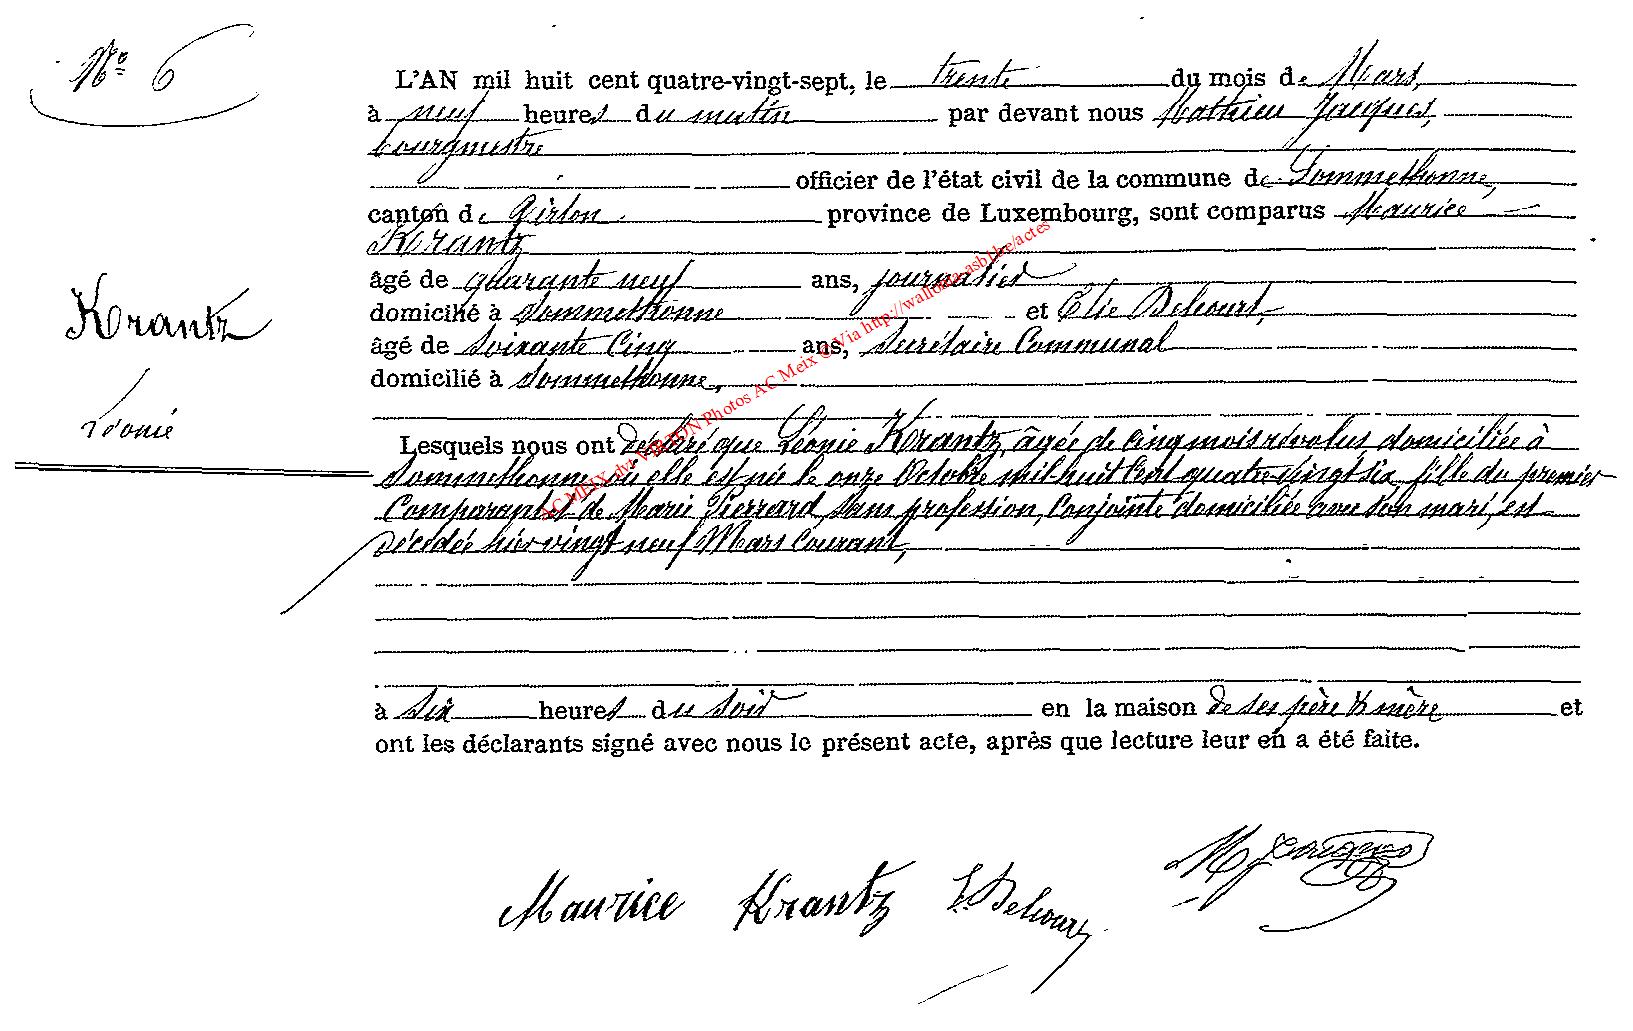 Nº 6
L'AN mil huit cent quatre-vingt-sept, le trente du mois de Mars,
à neuf heures du matin par devant nous Mathieu Jacques,
bourgmestre
officier de l'état civil de la commune de Sommethonne,
canton de Virton province de Luxembourg, sont comparus Maurice
Krantz
âgé de quarante neuf ans, journalier
domicilié à Sommethonne et Elie Delcourt,
âgé de soixante cinq ans, secrétaire communal
domicilié à Sommethonne,
Krantz
Léonie
Lesquels nous ont déclaré que Léonie Krantz, âgée de cinq mois révolus, domiciliée à
Sommethonne où elle est née le onze Octobre mil huit cent quatre vingt six, fille du premier
comparant & de Marie Pierrard, sans profession, conjointe domiciliée avec son mari, est
décédée hier vingt neuf Mars courant,
à six heures du soir en la maison de ses père & mère et
ont les déclarants signé avec nous le présent acte, après que lecture leur en a été faite.
Maurice Krantz E. Delcourt M Jacques
AC MEIX-dv-VIRTON Photos AC Meix © Via http://wallonia-asbl.be/actes